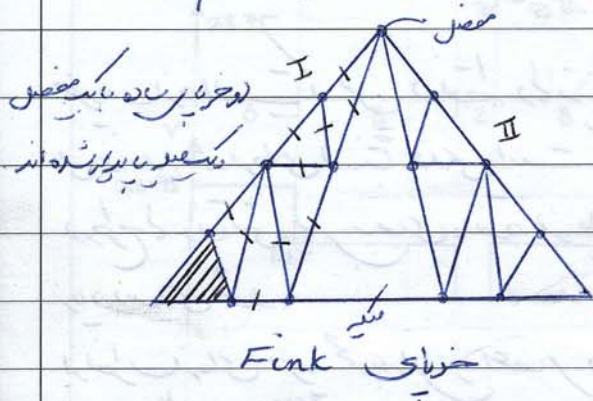 مفصل
I
دو خرپای ساده با یک مفصل
و یک میله پایدار شده اند
II
میله
خرپای Fink